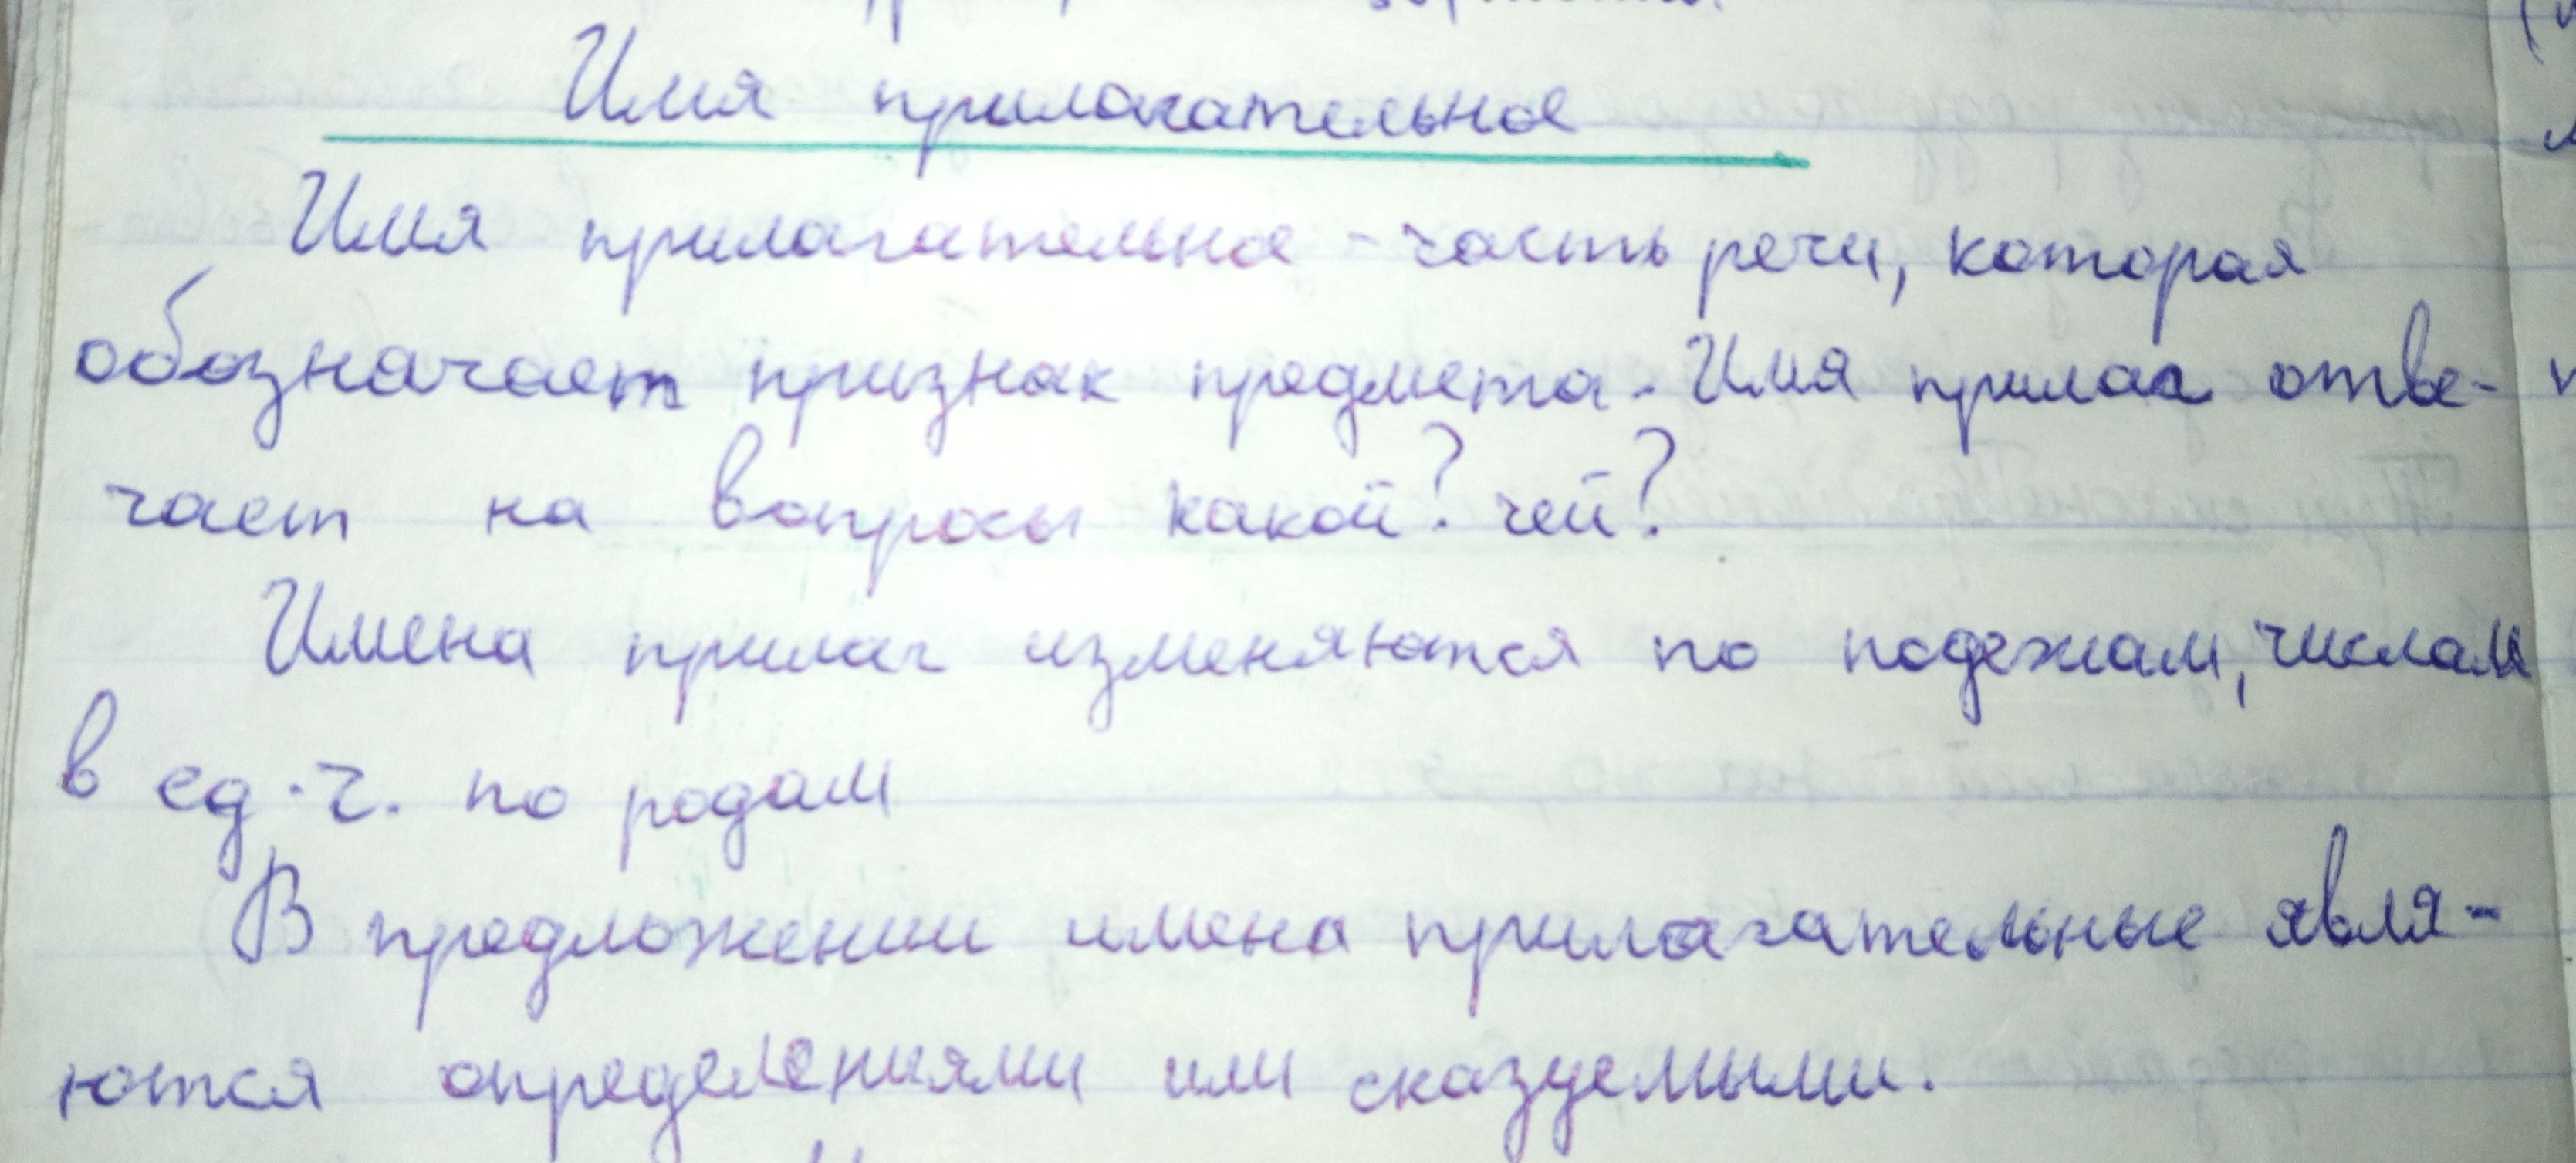 Имя прилагательное
Имя прилагательное - часть речи, которая
обозначает признак предмета. Имя прилаг отве-
чает на вопросы какой? чей?
Имена прилаг изменяются по падежам, числам
в ед.ч. по родам
В предложении имена прилагательные явля-
ются определениями или сказуемыми.